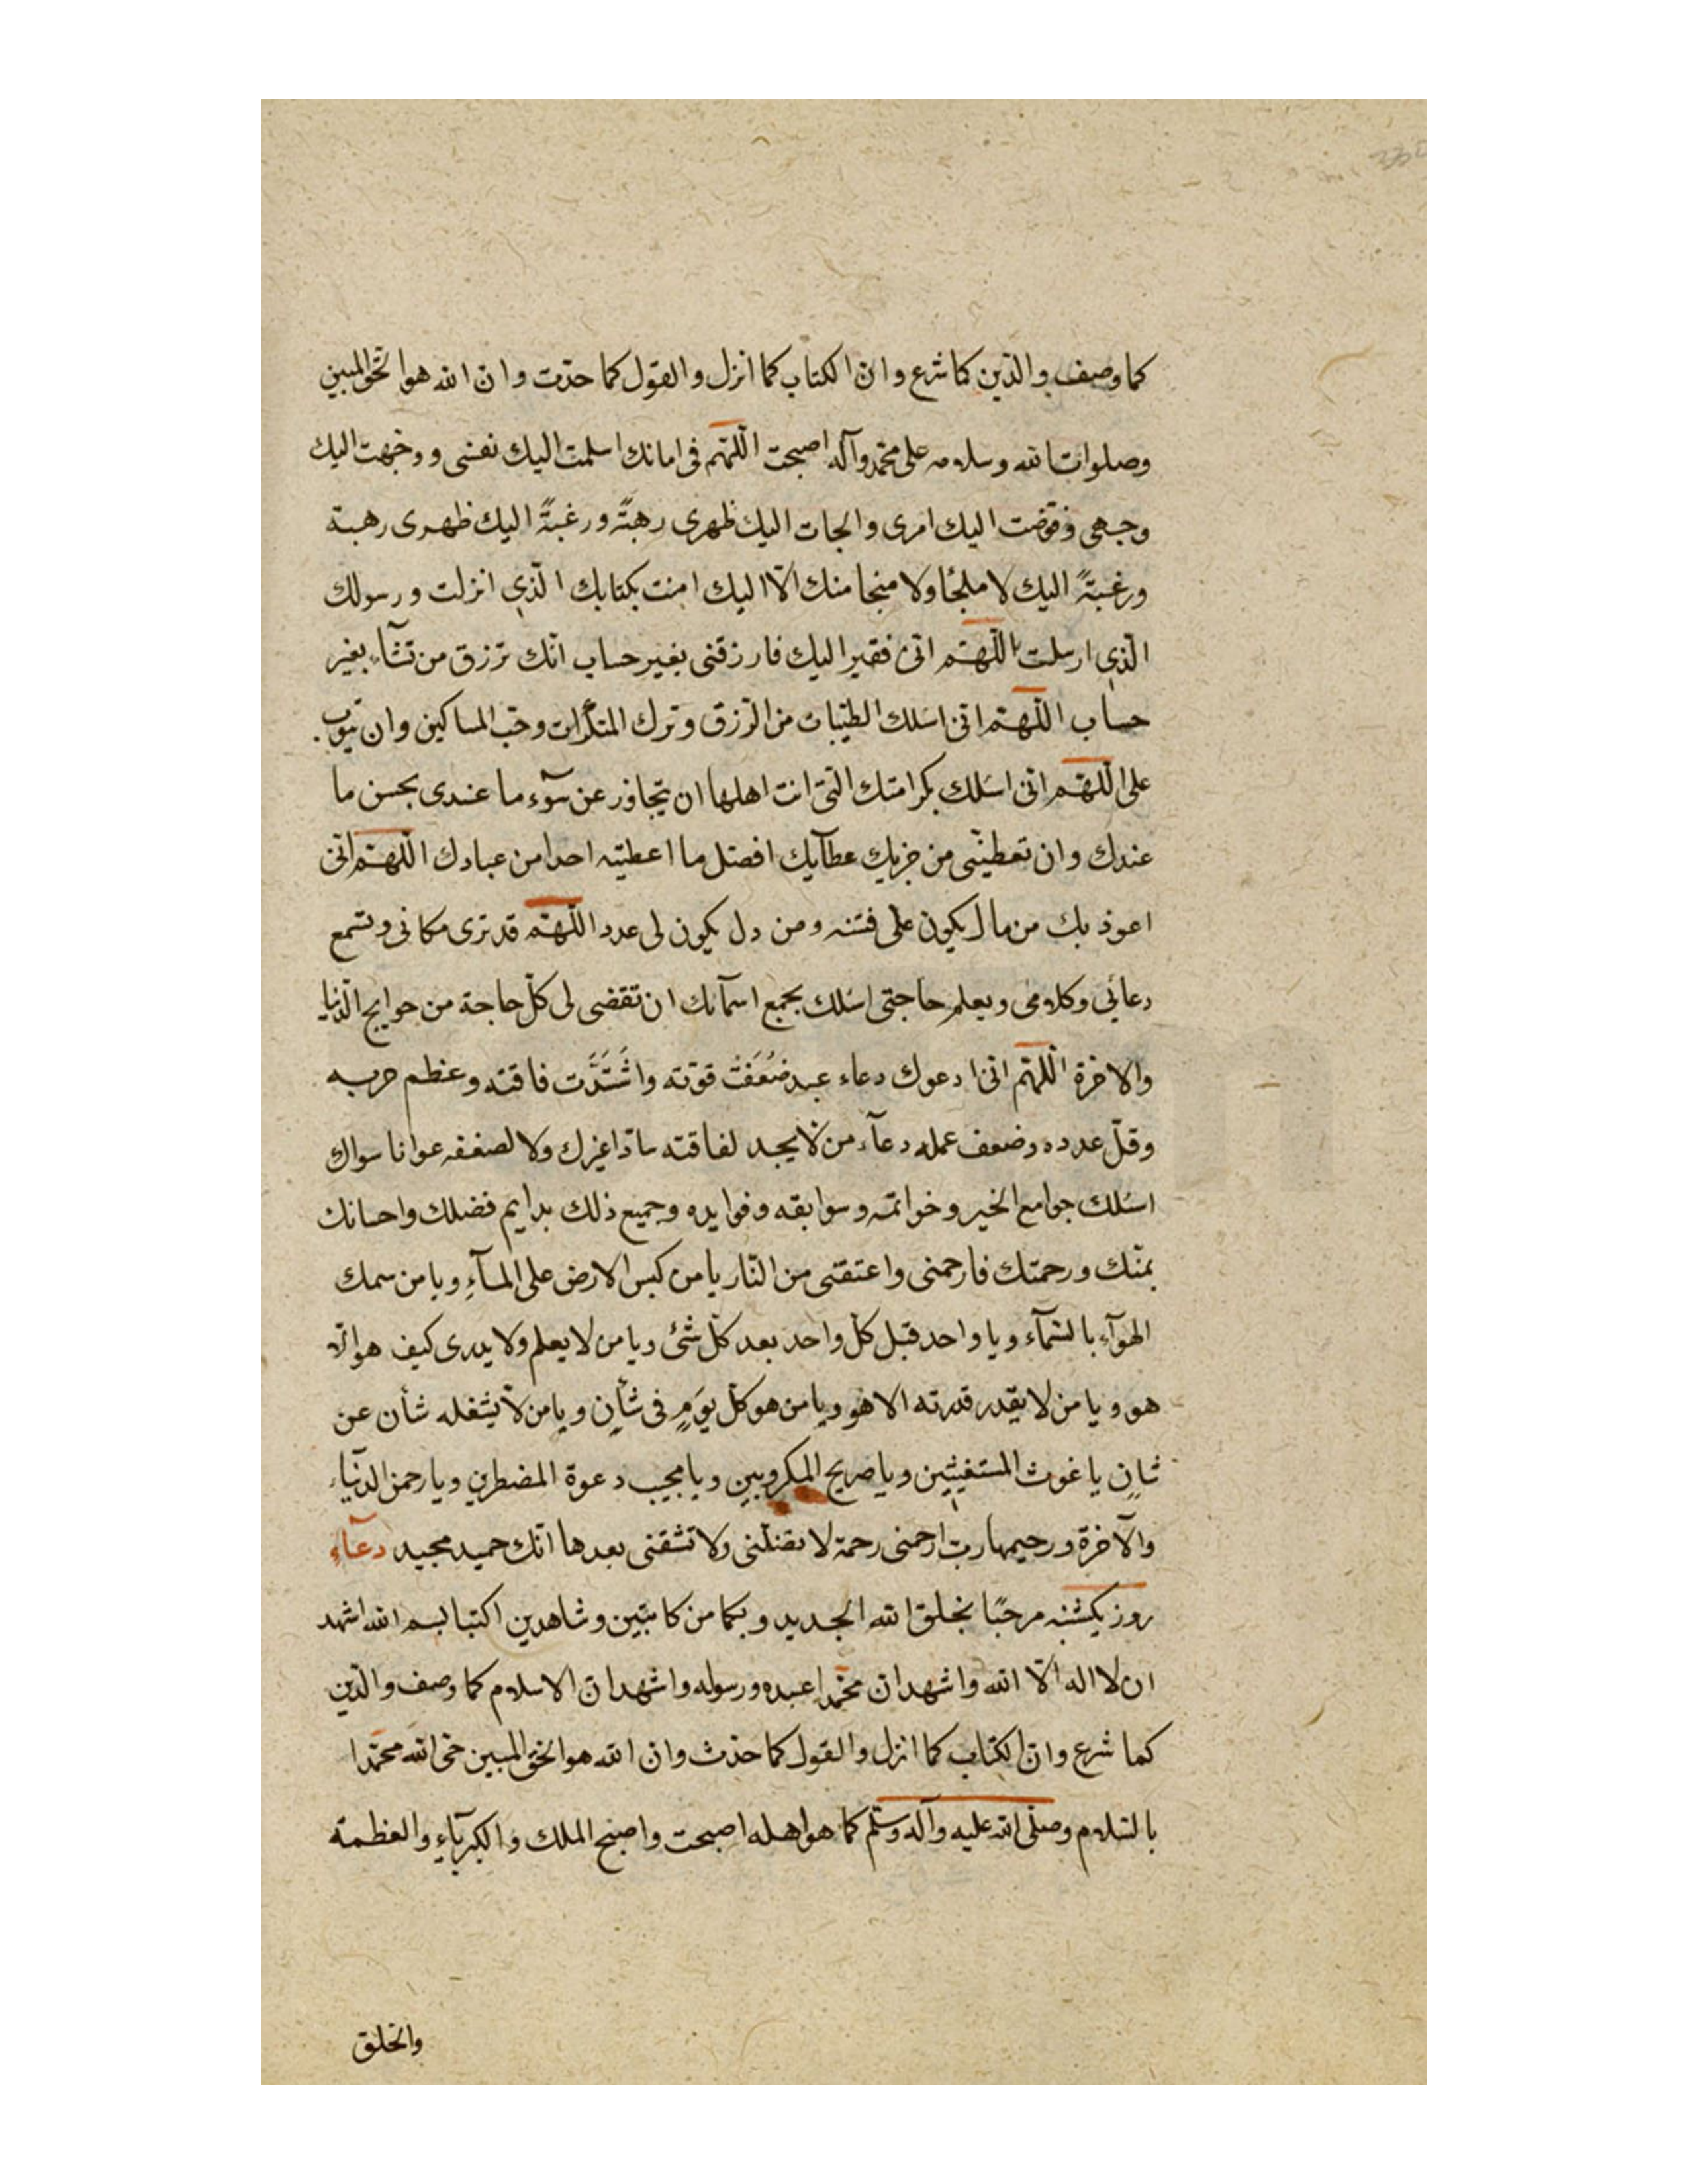 كما وصف والدّين كما شرع وان الكتاب كما انزل والقول كما حدّث وان الله هو الحّق المبين
وصلوات الله وسلامه على محمّد وآله اصبحت اللّهمّ فى امانك اسلمت اليك نفسى ووجّهت اليك
وجهى وفوّضت اليك امرى والجات اليك ظهرى رهبتًه ورغبتًه اليك ظهرى رهبة
ورغبتًه اليك لا ملجئا ولا منجا منك الّا اليك امنت بكتابك الّذي انزلت ورسولك
الّذي ارسلت اللّهمّ انّى فقير اليك فارزقنى بغير حساب انّك ترزق من تشآء بغير
حساب اللّهمّ انّى اسئلك الطيّبات من الرّزق وترك المنكرات وحبّ المساكين وان تتوب
على اللّهمّ انّى اسئلك بكرامتك الّتى انت اهلها ان تتجاوز عن سوٓء ما عندى بحسن ما
عندك وان تعطينى من جزيك عطآيك افضل ما اعطيته احدا من عبادك اللّهمّ انّى
اعوذ بك من مال يكون على فتنه ومن دل يكون لى عدد اللّهمّ قد ترى مكانى وتسمع
دعائي وكلامى ويعلم حاجتى اسئلك بجمع اسمآئك ان تقضى لى كلّ حاجة من حوايج الدّنيا
والاخرة اللّهمّ انّى ادعوك دعاء عبد ضَعُفَتْ قوّته واشْتَدَّت فاقته وعظم جربه
وقلّ عدده وضعف عمله دعآء من لا يجد لفاقته سادّا غيرك ولا لصنغفه عوانا سواك
اسئلك جوامع الخير وخواتمه وسوابقه وفوايده وجميع ذلك بدايم فضلك واحسانك
بمنّك ورحمتك فارحمنى واعتقنى من النّار يا من كبس الارض على المآءِ ويا من سمك
الهوآءِ بالسّمآء ويا واحد قبل كلّ واحد بعد كلّ شئ ويا من لا يعلم ولا يدرى كيف هو الّا
هو ويا من لا يقدر قدرته الا هو ويا من هو كلّ يَومٍ فى شأنٍ ويا من لا يشغله شأن عن
شانٍ يا غوث المستغيثين ويا صريخ المكروبين ويا مجيب دعوة المضطرين ويا رحمن الدنياء
والآخرة ورحيمها ربّ ارحمنى رحمة لا تضلّنى ولا تشقنى بعدها انّك حميد مجيد دعآءِ
روز يكشنبه مرحبًا بخلق الله الجديد وبكما من كاتبين وشاهدين اكتبا بسم الله اشهد
ان لا اله الّا الله واشهد ان محمّدا عبده ورسوله واشهد ان الاسلام كما وصف والدّين
كما شرع وان الكتاب كما انزل والقول كما حدّث وان الله هو الحّق المبين حىّ الله محمّدا
بالسّلام وصلّى الله عليه وآله وسلّم كما هو اهله اصبحت واصبح الملك والكبرياءِ والعظمة
والخلق